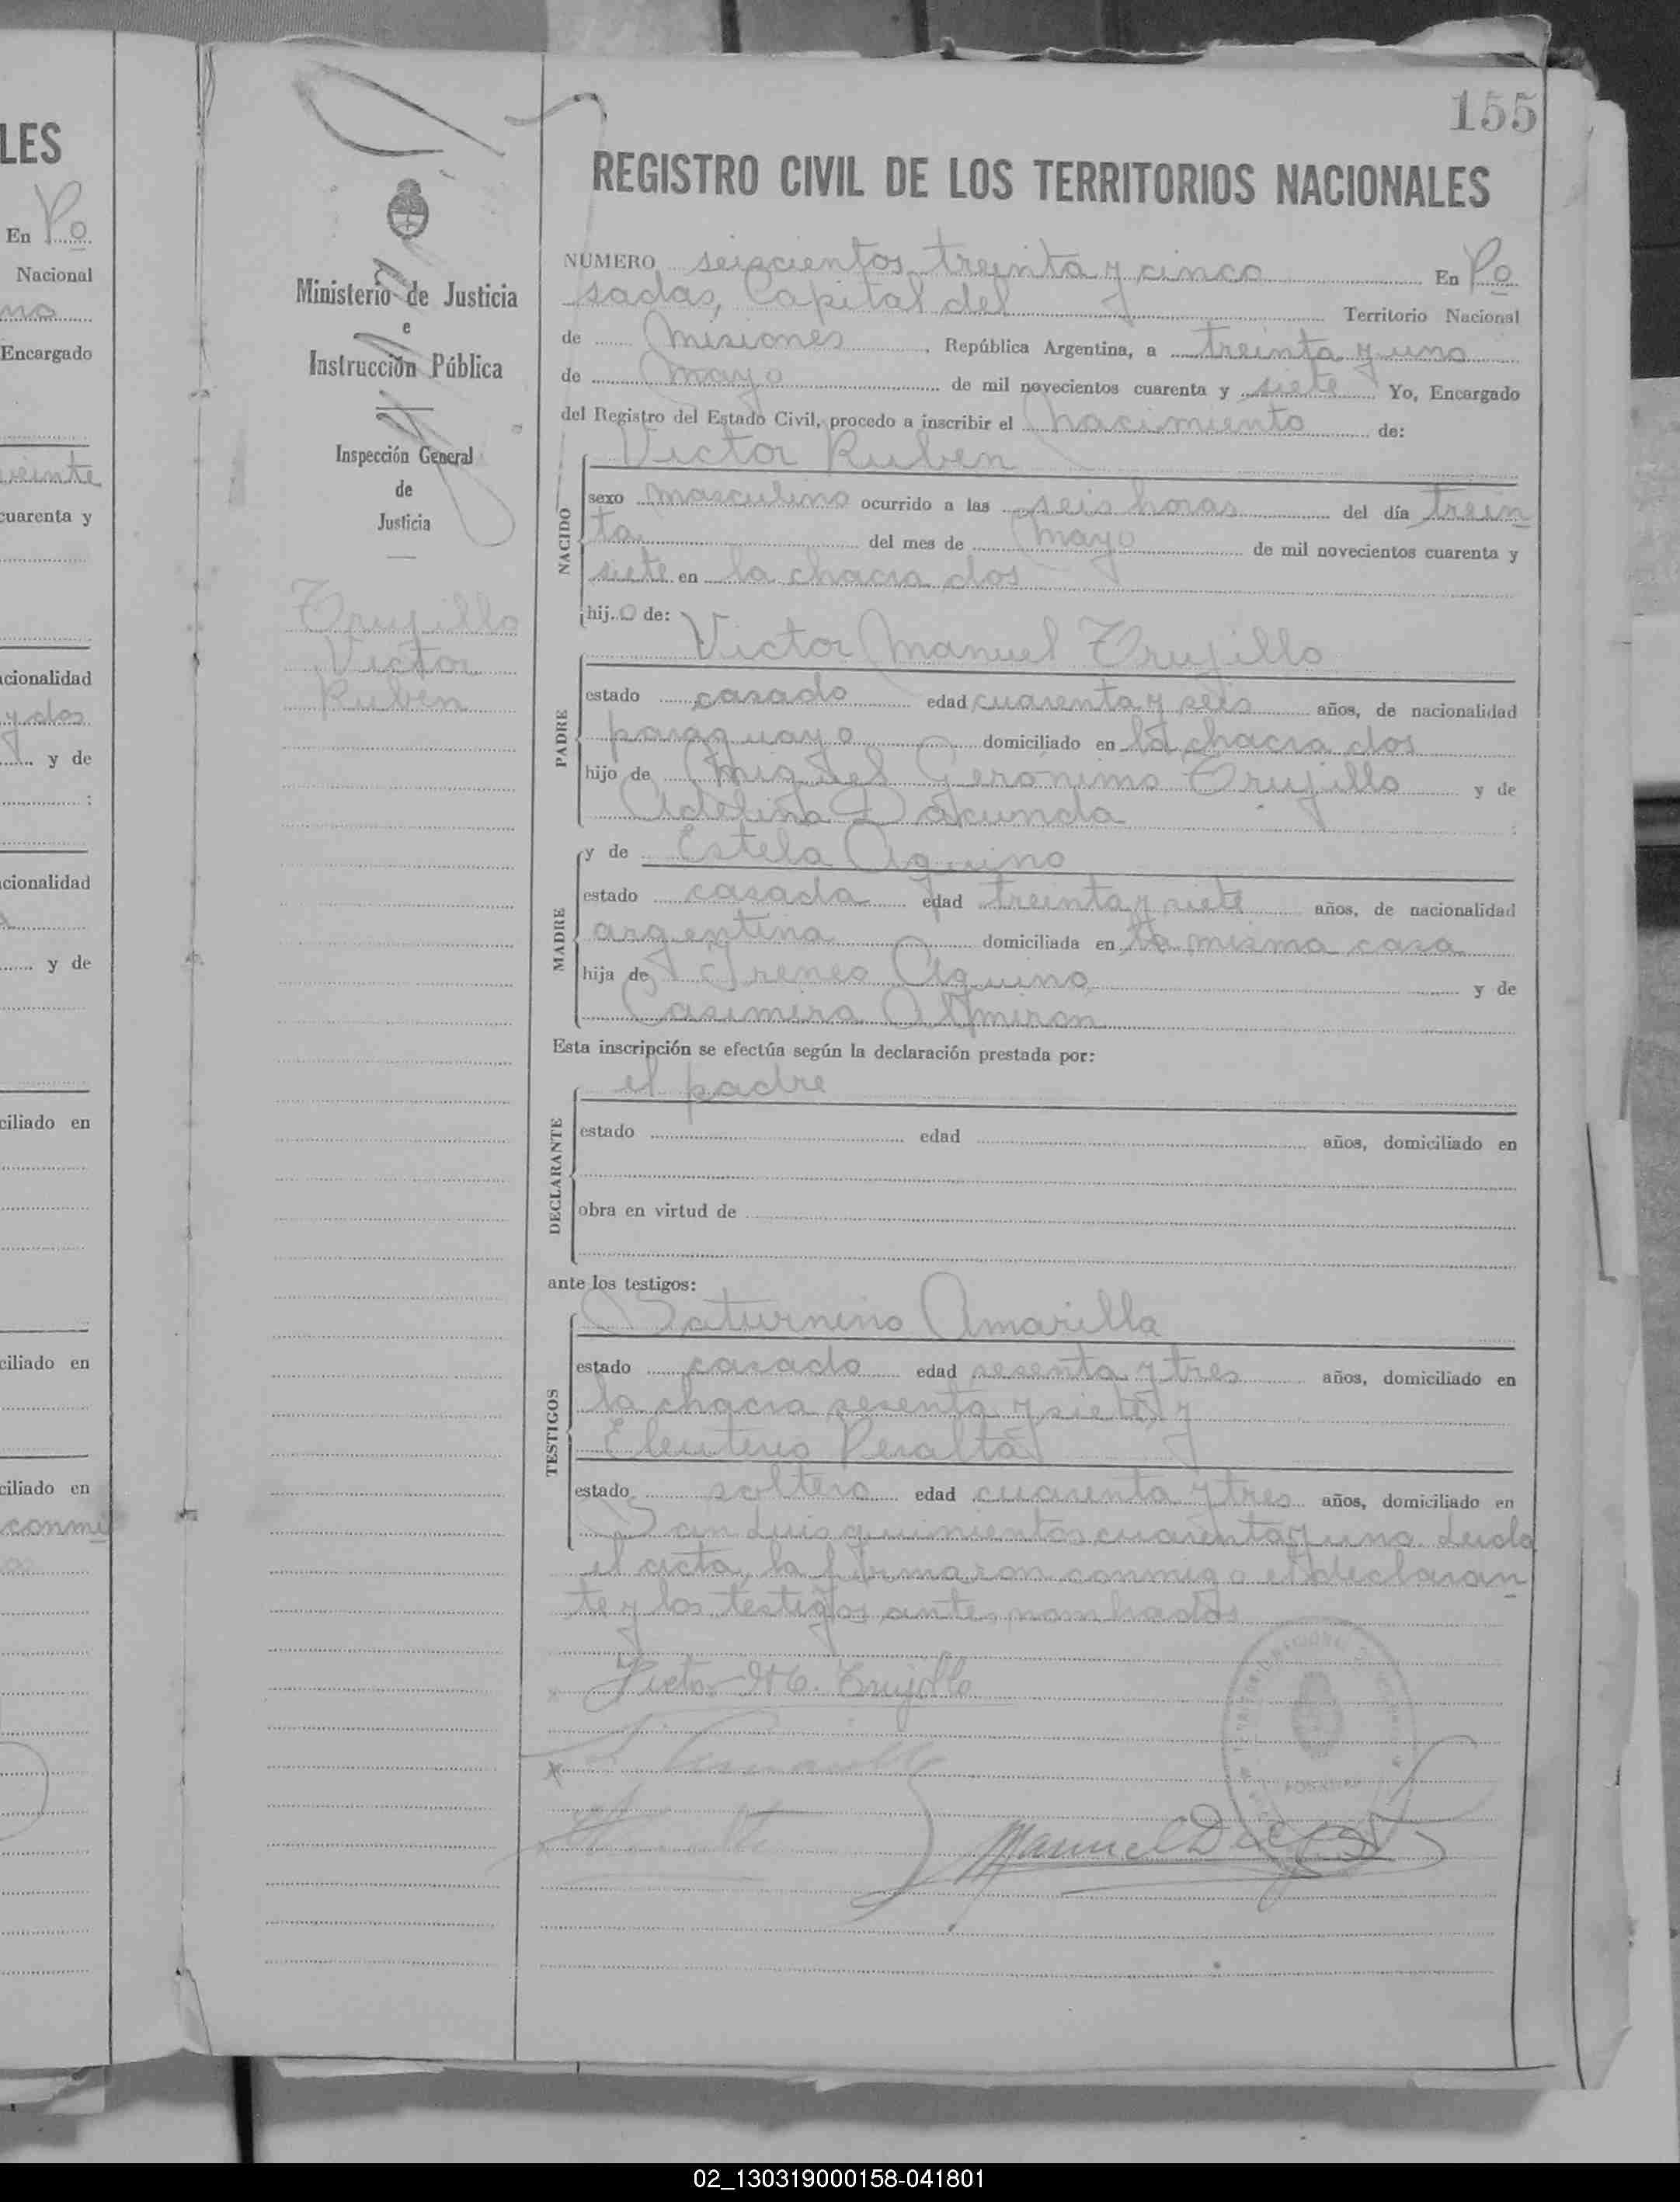 155
LES
REGISTRO CIVIL DE LOS TERRITORIOS NACIONALES
En Po
Nacional
Encargado
veinte
cuarenta y
cionalidad
y dos
y de
cionalidad
y de
ciliado en
ciliado en
ciliado en
conmi
Ministerio de Justicia
e
Instrucción Pública
Inspección General
de
Justicia
Trujillo
Victor
Ruben
NÚMERO seiscientos treinta y cinco En Po
sadas, Capital del Territorio Nacional
de Misiones, República Argentina, a treinta y uno
de mayo de mil novecientos cuarenta y siete Yo, Encargado
del Registro del Estado Civil, procedo a inscribir el nacimiento de:
Victor Ruben
NACIDO
sexo masculino ocurrido a las seis horas del día trein
ta del mes de mayo de mil novecientos cuarenta y
siete en la chacra dos
hijo de:
Victor Manuel Trujillo
PADRE
estado casado edad cuarenta y seis años, de nacionalidad
paraguayo domiciliado en la chacra dos
hijo de Miguel Gerónimo Trujillo y de
Adelina Dakunda
MADRE
y de Estela Aquino
estado casada edad treinta y siete años, de nacionalidad
argentina domiciliada en la misma casa
hija de Ireneo Aquino y de
Casimira Almiron
Esta inscripción se efectúa según la declaración prestada por:
el padre
DECLARANTE
estado edad años, domiciliado en
obra en virtud de
ante los testigos:
Saturnino Amarilla
TESTIGOS
estado casado edad sesenta y tres años, domiciliado en
la chacra sesenta y siete y
Eleuterio Peralta
estado soltero edad cuarenta y tres años, domiciliado en
San Luis quinientos cuarenta y uno. Leida
el acta, la firmaron conmigo el declaran
te y los testigos antes nombrados
Victor M. Trujillo
Manuel D
02_130319000158-041801